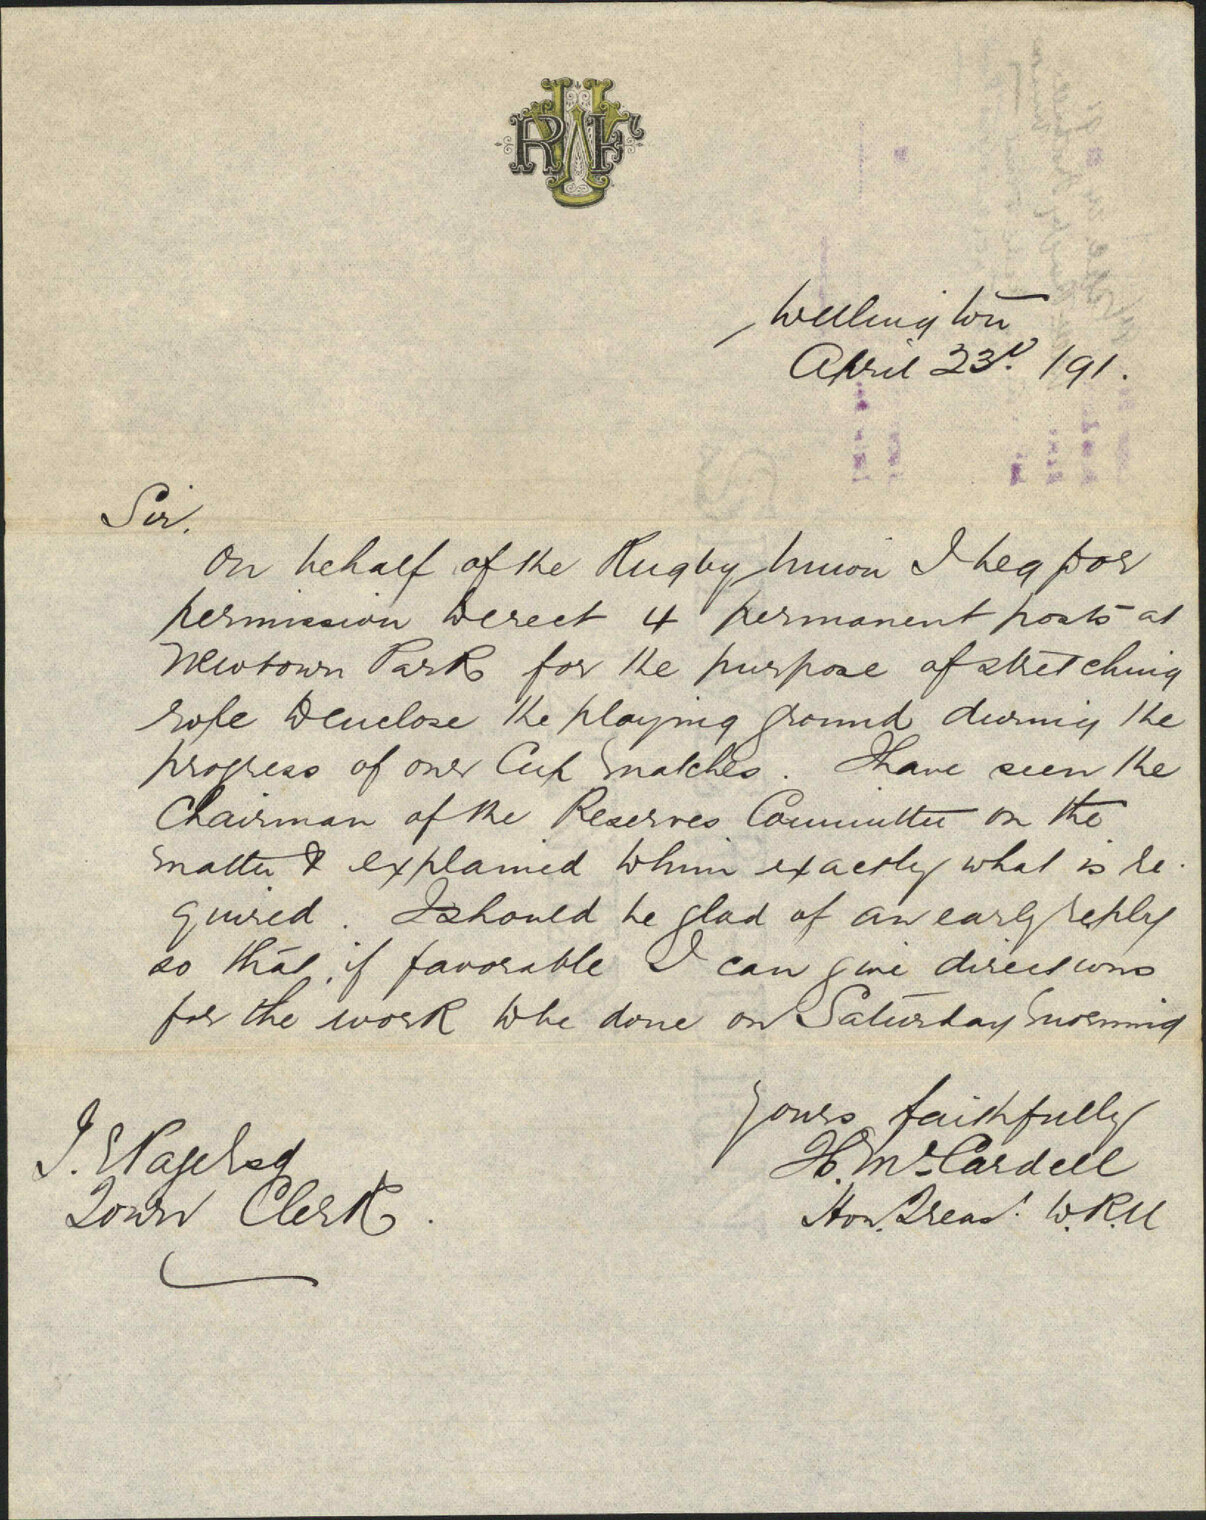 Wellington
April 23d. /91.
Sir.
On behalf of the Rugby Union I beg for
permission to erect 4 permanent posts at
Newtown Park for the purpose of stretching
rope to enclose the playing ground during the
progress of our Cup Matches. I have seen the
Chairman of the Reserves Committee on the
matter & explained to him exactly what is re-
quired. I should be glad of an early reply
so that, if favorable I can give directions
for the work to be done on Saturday morning
Yours faithfully
J. E Page Esq
H. McCardell
Town Clerk.
Hon. Treas. W.R.U